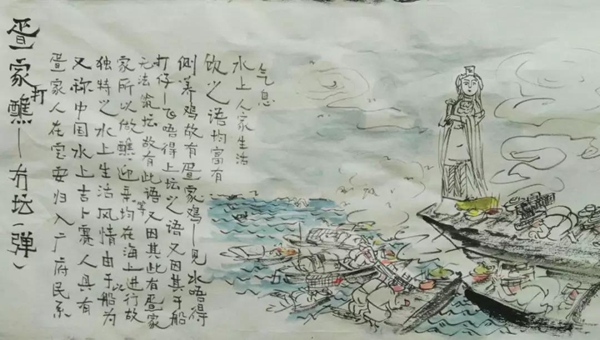 疍家打醮——冇坛（弹）
疍家人在宝安归入广府民系
又称中国水上吉卜赛人具有
独特之水上生活风情由于以船为
家所以做醮迎亲均在海上进行故
无法筑坛故有此语又因其此有疍家
打仔——飞唔得上坛之语又因其于船
侧养鸡故有疍家鸡——见水唔得
饮之语均富有
水上人家生活
气息